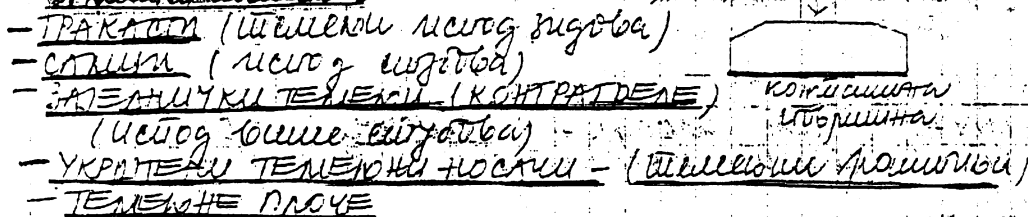 - ТРАКАСТИ (темељи испод зидова)
- САМЦИ (испод стубова)
- ЗАЈЕДНИЧКИ ТЕМЕЉИ (КОНТРАГРЕДЕ)
(испод више стубова)
- УКРШТЕНИ ТЕМЕЉНИ НОСАЧИ - (темељни роштиљи)
- ТЕМЕЉНЕ ПЛОЧЕ
контактна
површина